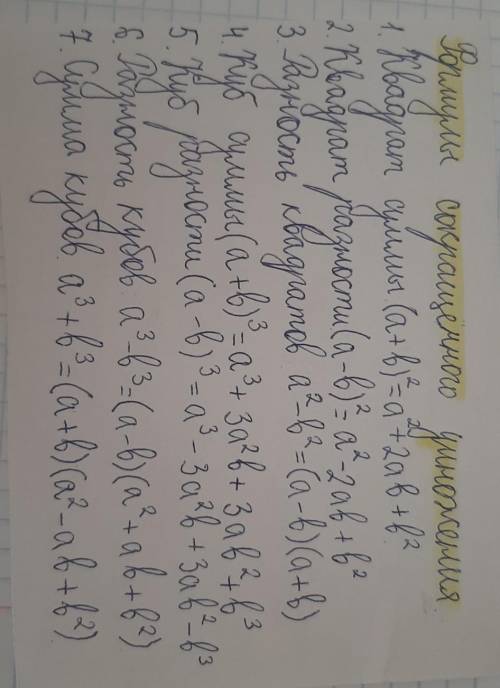 Формулы сокращённого умножения.
1. Квадрат суммы. (a+b)²=a²+2ab+b²
2. Квадрат разности (a-b)²=a²-2ab+b²
3. Разность квадратов a²-b²=(a-b)(a+b)
4. Куб суммы (a+b)³=a³+3a²b+3ab²+b³
5. Куб разности (a-b)³=a³-3a²b+3ab²-b³
6. Разность кубов. a³-b³=(a-b)(a²+ab+b²)
7. Сумма кубов. a³+b³=(a+b)(a²-ab+b²)